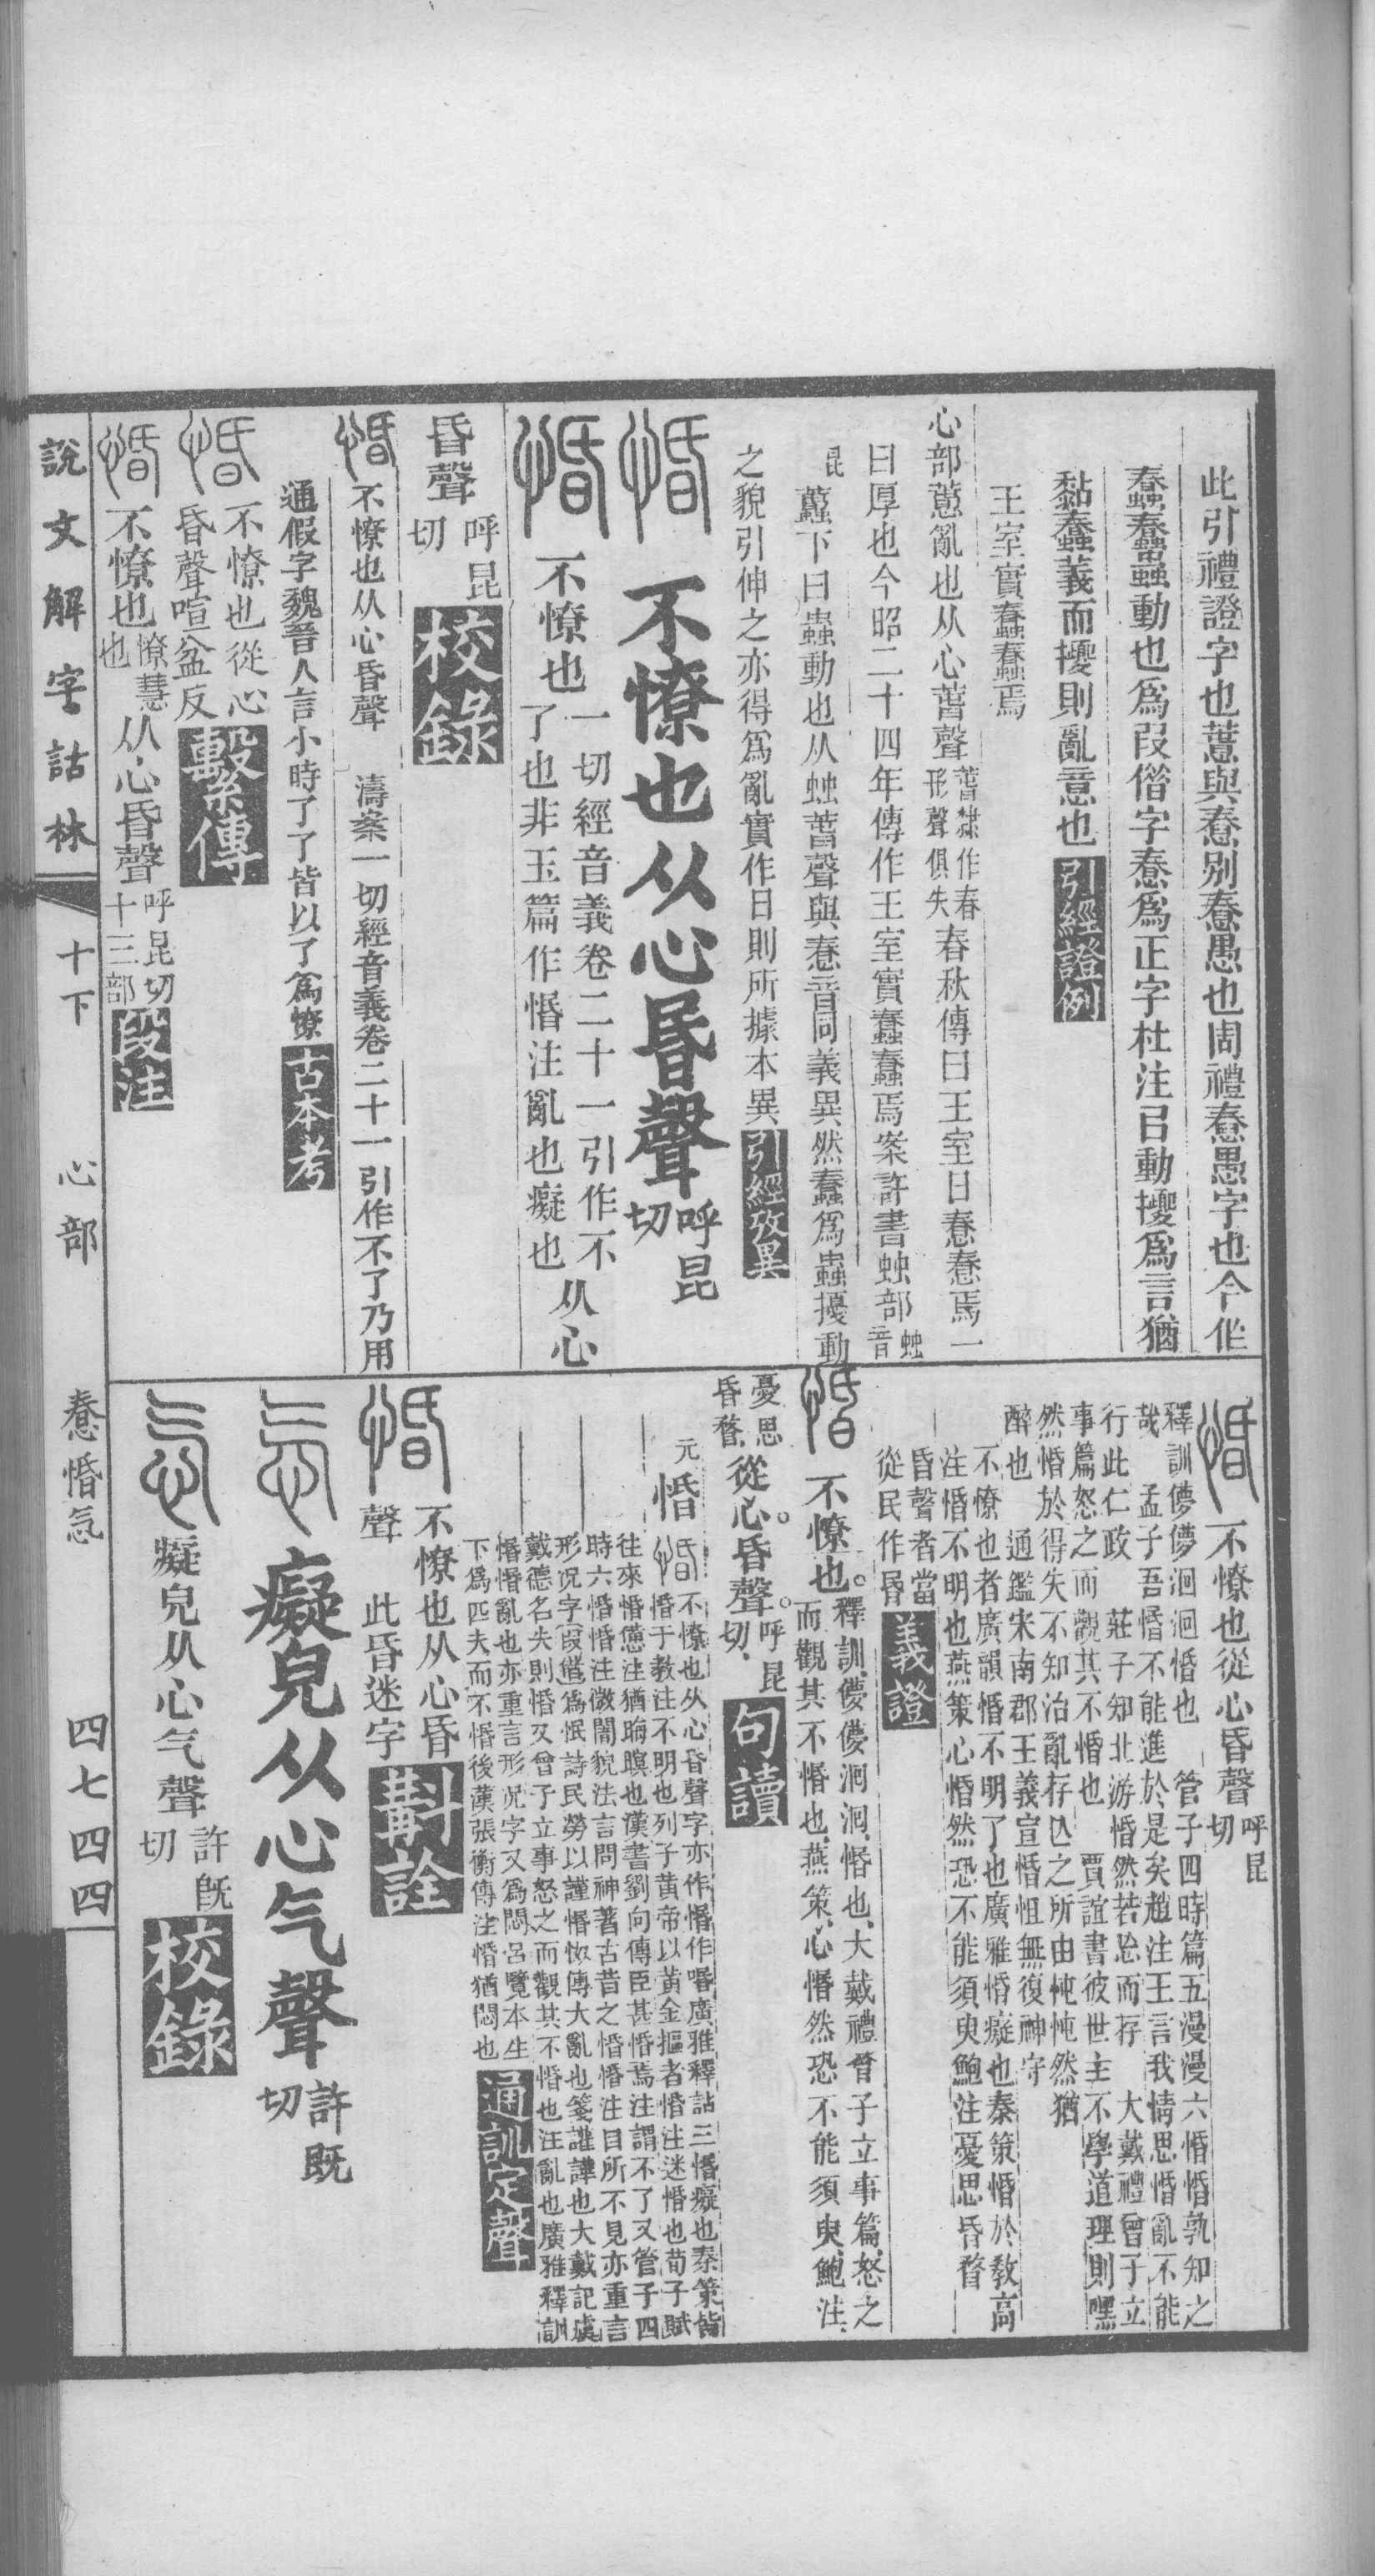 此引禮證字也惷與惷別惷愚也周禮惷愚字也今作
蠢蠢蟲動也爲叚借字惷爲正字杜注曰動擾爲言猶
黏蠢義而擾則亂意也引經證例
王室實蠢蠢焉
心部惷亂也从心萅聲萅隸作春
形聲俱失春秋傳曰王室日惷惷焉一
曰厚也今昭二十四年傳作王室實蠢蠢焉案許書䖵部䖵
音
昆蠢下曰蟲動也从䖵萅聲與惷音同義異然蠢爲蟲擾動
之貌引伸之亦得爲亂實作日則所據本異引經攷異
惛不憭也从心昬聲呼昆
切
惛不憭也一切經音義卷二十一引作不
了也非玉篇作惛注亂也癡也从心
昏聲呼昆
切校錄
惛不憭也从心昏聲 濤案一切經音義卷二十一引作不了乃用
通假字魏晉人言小時了了皆以了爲憭古本考
惛不憭也從心
昏聲喧盆反繫傳
惛不憭也憭慧
也从心昏聲呼昆切
十三部段注
惛不憭也從心昏聲呼昆
切
釋訓儚儚洄洄惛也 管子四時篇五漫漫六惛惛孰知之
哉 孟子吾惛不能進於是矣趙注王言我情思惛亂不能
行此仁政 莊子知北游惛然若亡而存 大戴禮曾子立
事篇怒之而觀其不惛也 賈誼書彼世主不學道理則嘿
然惛於得失不知治亂存亾之所由忳忳然猶
醉也 通鑑宋南郡王義宣惛怚無復神守
不憭也者廣韻惛不明了也廣雅惛癡也秦策惛於敎高
注惛不明也燕策心惛然恐不能須臾鮑注憂思昏瞀
昏聲者當
從民作昬義證
惛不憭也。釋訓、儚儚洄洄、惛也、大戴禮曾子立事篇、怒之
而觀其不惛也、燕策、心惛然恐不能須臾、鮑注、
憂思
昏瞀、從心。昏聲。呼昆
切、句讀
元惛惛不憭也从心昏聲字亦作惽作㖧廣雅釋詁三惛癡也秦策皆
惛于教注不明也列子黃帝以黃金摳者惛注迷惛也荀子賦
往來惛憊注猶晦暝也漢書劉向傳臣甚惛焉注謂不了又管子四
時六惛惛注微闇貌法言問神著古昔之㖧㖧注目所不見亦重言
形況字叚借爲怋詩民勞以謹惛怓傳大亂也箋讙譁也大戴記虞
戴德名失則惛又曾子立事怒之而觀其不惛也注亂也廣雅釋訓
惛惛亂也亦重言形況字又爲悶呂覽本生
下爲匹夫而不惛後漢張衡傳注惛猶悶也通訓定聲
惛不憭也从心昏
聲 此昏迷字斠詮
忥癡皃从心气聲許既
切
忥癡皃从心气聲許旣
切校錄
說文解字詁林 十下 心部 惷惛忥 四七四四